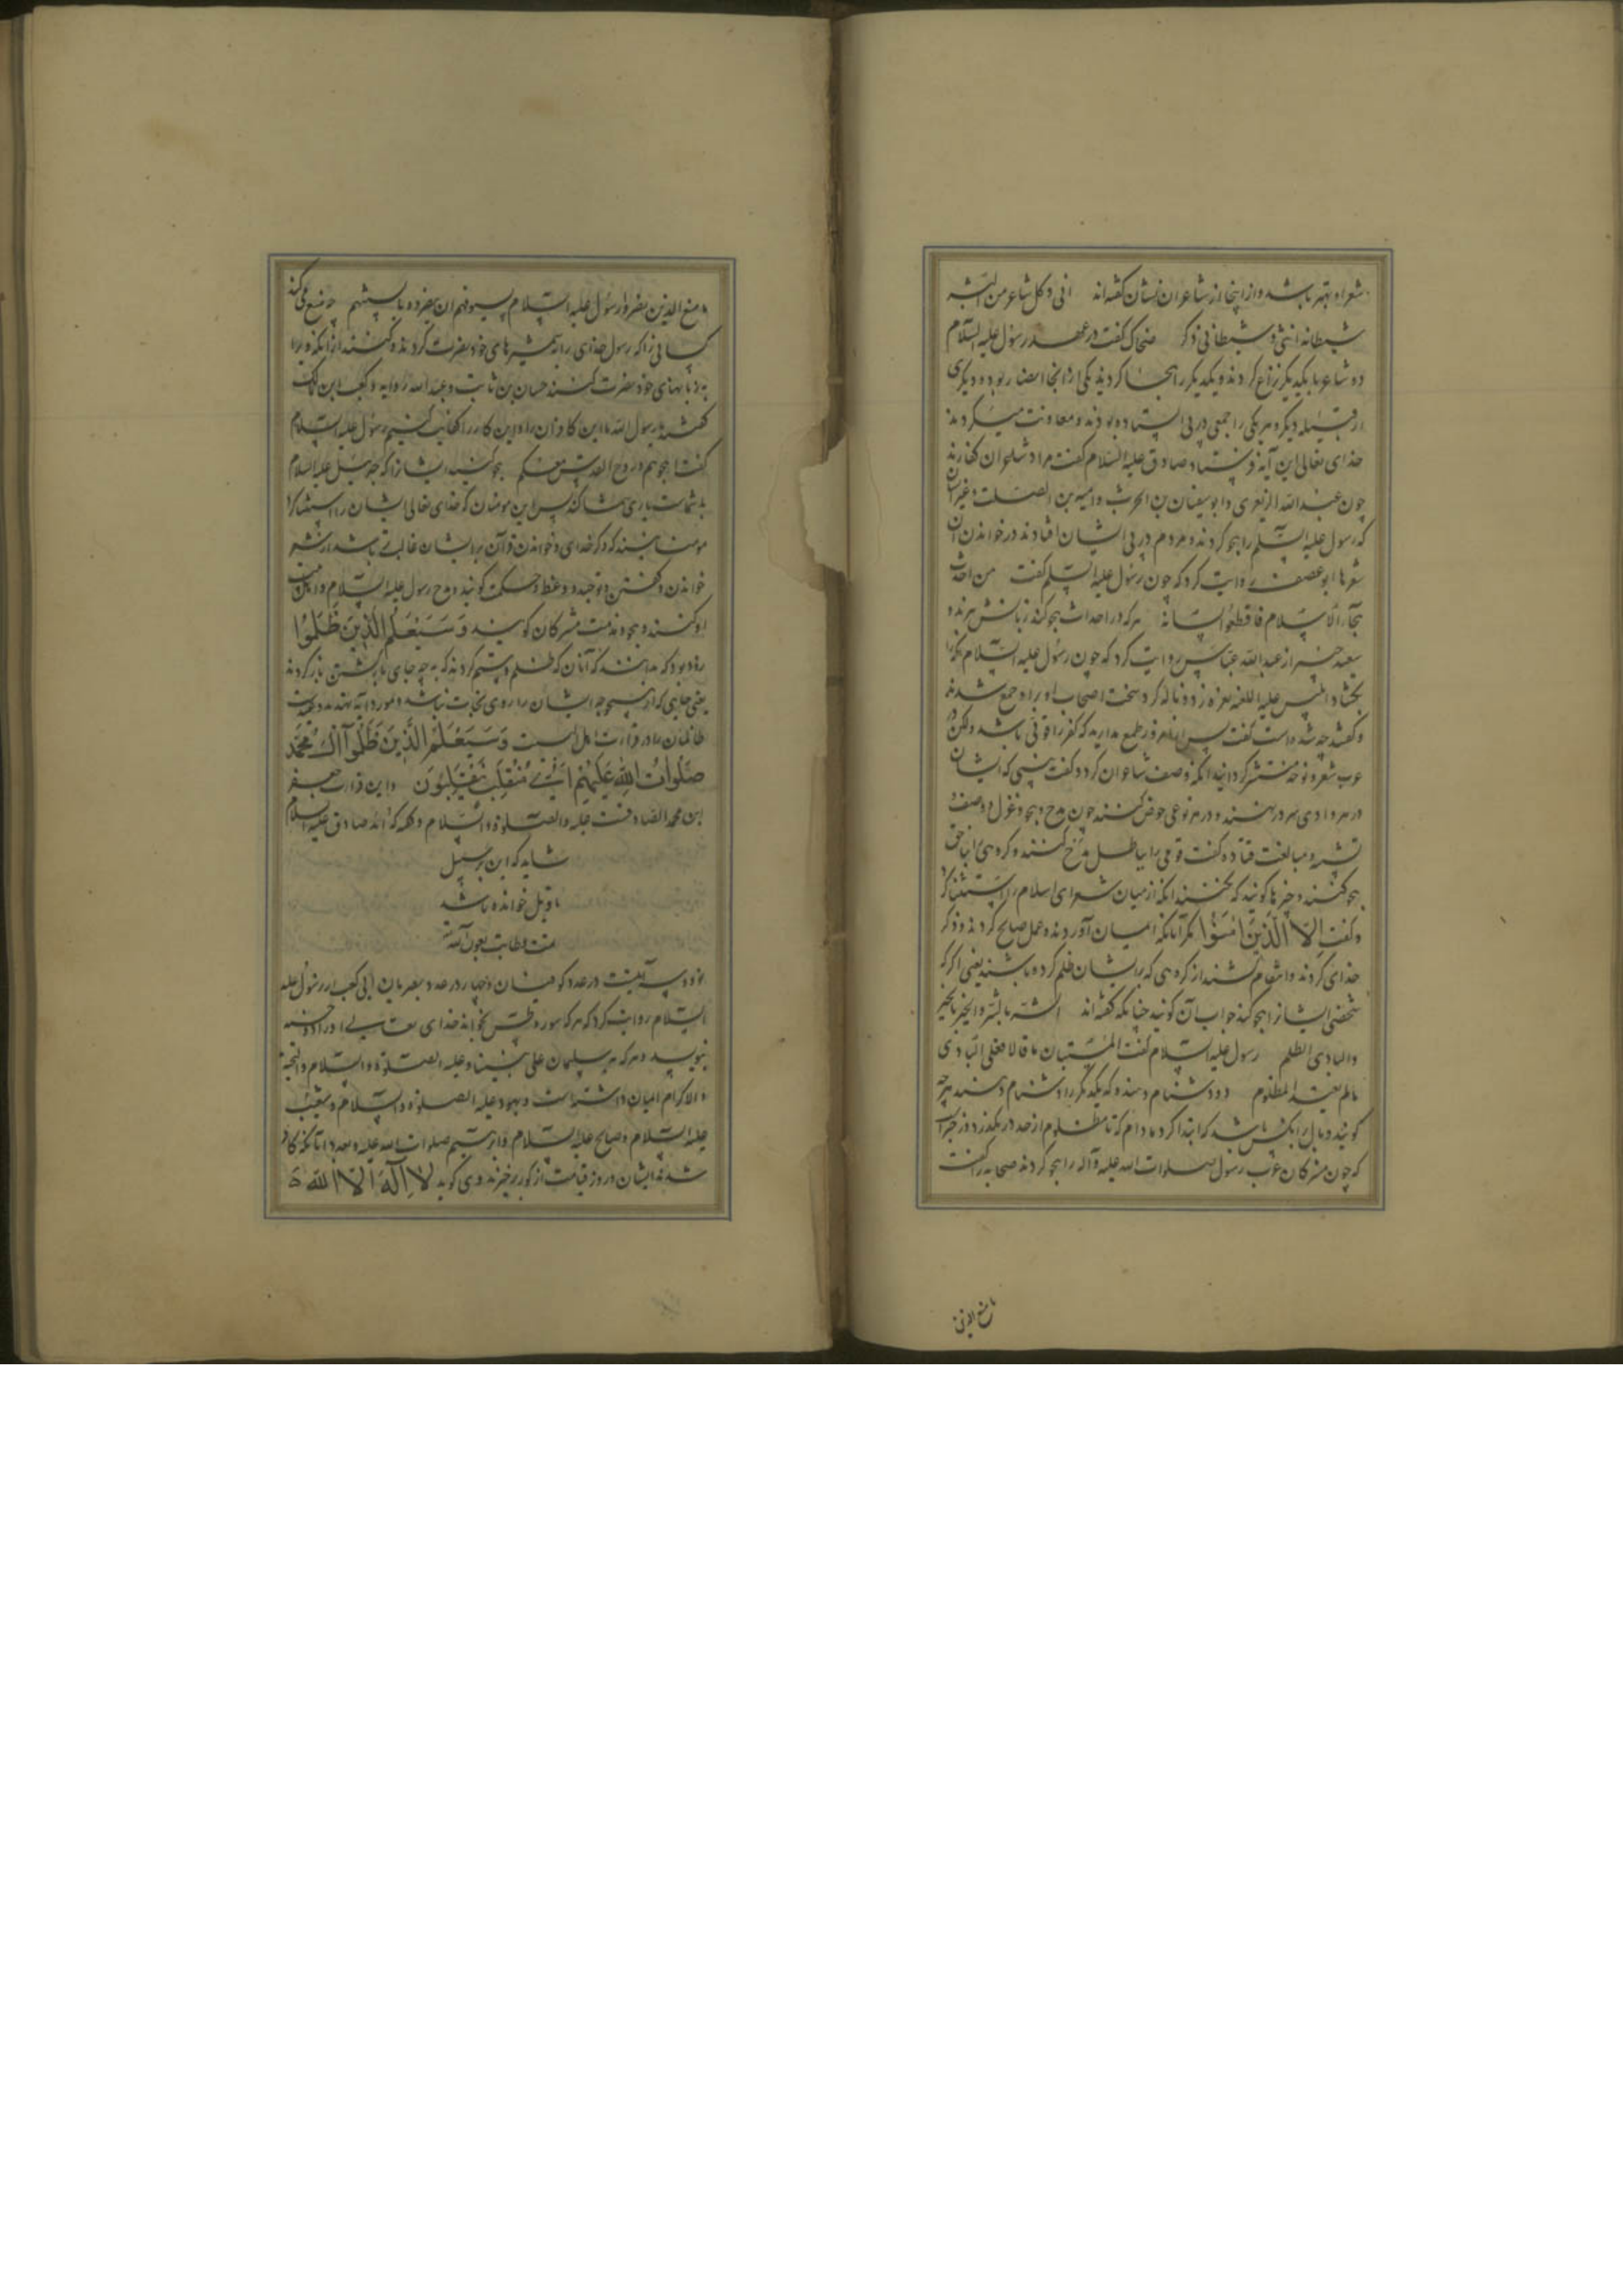 شعر او بهتر باشد و از اینجا از شاعران نشان گفته‌اند انی و کل شاعر من البشر
شیطانه انثی و شیطانی ذکر ضحاک گفت در عهد رسول علیه السلام
دو شاعر با یکدیگر نزاع کردند و یکدیگر را هجا کردند یکی از انجا انصار بود و دیگری
از قبیله دیگر و هر یکی را جمعی در پی ایستاده بودند و معاونت میکردند
خدای تعالی این آیه فرستاد صادق علیه السلام گفت مراد شاعران کفارند
چون عبد الله الزبعری و ابو سفیان بن الحرث و امیه بن الصلت و غیر ایشان
که رسول علیه السلم را هجو کردند و مردم در پی ایشان افتادند در خواندن آن
شعرها روایت کرد که چون رسول علیه السلم گفت من احدث
هجآء الاسلام فاقطعوا لسانه هر که در احداث هجو کند زبانش برند و
سعید جبیر از عبد الله عباس روایت کرد که چون رسول علیه السلام مکه را
بکشاد ابلیس علیه اللعنه نعره زد و ناله کرد سخت اصحاب او برا و جمع شدند
و گفتند چه شده است گفت پس از طمع مدارید که کفر را قوتی باشد ولکن در
عرب شعر و نوحه منتشر کردانید انکه وصف شاعران کرد و گفت نبینی که ایشان
در هر وادی سر در نهند و در هر نوعی خوض کنند چون مدح و هجو و غزل و وصف و
تشبیه و مبالغت قتاده گفت قومی را بباطل مدح کنند و کروهی را بناحق
هجو کنند و چیزها کویند که نکنند انکه از میان شعرای اسلام را استثنا کرد
و گفت اِلّا الَّذینَ امَنُوا مگر آنانکه ایمان آوردند و عمل صالح کردند و ذکر
خدای کردند و انتقام کشند از کروهی که بر ایشان ظلم کرده باشند یعنی اگر که
شخصی ایشانرا هجو کند جواب آن کویند چنانکه گفته‌اند الشر بالشر و الخیر بالخیر
والبادی اظلم رسول علیه السلام گفت المستبان ما قالا فعلی البادی
مالم یعتد المظلوم دو دشنام دهنده که یکدیگر را دشنام دهند هر چه
کویند وبال بر انکس باشد که ابتدا کرد مادام که تا مظلوم از حد در نکذرد و در خبر است
که چون مشرکان عرب رسول صلوات الله علیه و آله را هجو کردند صحابه را گفت
الذین کفروا رسول علیه السلام بسیوفهم ان یضروه بالسنتهم چه منع می کند
کسانی را که رسول خدای را بشمشیرهای خود نصرت کردند از انکه ویرا
بزبانهای خود نصرت کنند حسان بن ثابت و عبد الله رواحه و کعب ابن مالک
گفتند یا رسول الله ما این کار و این کار را کفایت کنیم رسول علیه السلام
گفت اهجوهم و روح القدس معکم هجو کنید ایشانرا که جبرئیل علیه السلام
با شماست یاری شما کند پس این مومنان که خدای تعالی ایشان را استثنا کرد
مومنانند که ذکر خدای و خواندن قرآن بر ایشان غالبتر باشد از شعر
خواندن و گفتن و توحید و وعظ و حکمت کویند و مدح رسول علیه السلام و
او کنند و هجو و مذمت مشرکان کویند وَسَیَعْلَمُ الَّذینَ ظَلَمُوا
زود بود که بدانند که آنان که ظلم و ستم کردند که به چه جای بازگشتن باز کردند
یعنی جایی که از هیچوجه ایشان را روی نجات نباشد و مورد آیه تهدید و وعید
ظالمان را در قرائت اهل است وَسَیَعْلَمُ الَّذینَ ظَلَمُوا آلَ مُحَمَّد
صَلَوات اللهِ عَلَیْهِم اَیَّ مُنْقَلَبٍ یَنْقَلِبُونَ و این قرائت جعفر
ابن محمد الصادقست علیه الصلوة والسلام
شاید که این بر سبیل
تاویل خوانده باشد
نود و سه آیتست در عدد کوفیان و چهار در عدد بصریان ابی کعب از رسول علیه
السلام روایت کرد که هر که سوره طس بخواند خدای تعالی او را ده حسنه
بنویسد و هر که سلیمان علی نبینا و علیه الصلوة والسلام والتحیة
والاکرام ایمان داشته است و بهود علیه الصلوة والسلام و شعیب
علیه السلام و صالح علیه السلام و ابرهیم صلوات الله علیه و بعدد آنانکه کافر
شدند ایشان در روز قیامت از کور برخیزند و می کوید لا اِلٰهَ اِلّا الله